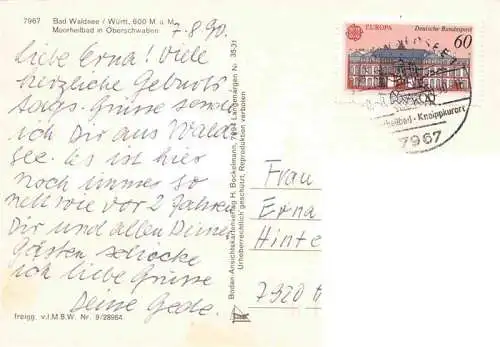 7967 Bad Waldsee / Württ. 600 M ü M
Moorheilbad in Oberschwaben
7.8.90.
Liebe Erna! Viele
herzliche Geburts
tags-Grüsse sende
ich Dir aus Wald
see. Es ist hier
noch immer so
nett wie vor 2 Jahren
Dir und allen Deinen
Gästen schicke
ich liebe Grüsse
Deine Gede.
freigg. v. I.M.B.W. Nr. 9/28964
Bodan Ansichtskartenverlag H. Bockelmann, 7994 Langenargen Nr. 35-31
Urheberrechtlich geschützt, Reproduktion verboten
EUROPA Deutsche Bundespost
60
heilbad · Kneippkurort
7967
Frau
Erna
Hinte
7920